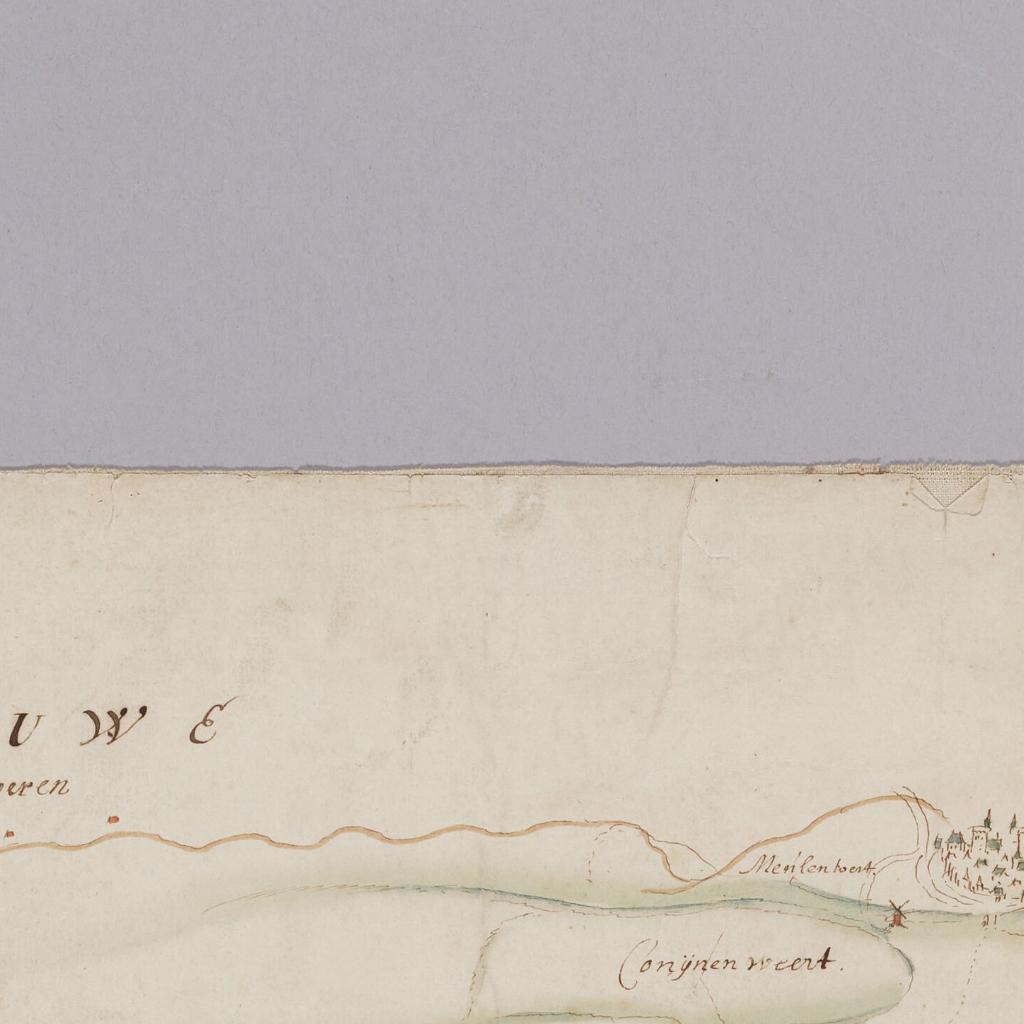 U W E
Meulenwert.
Conijnen weert.